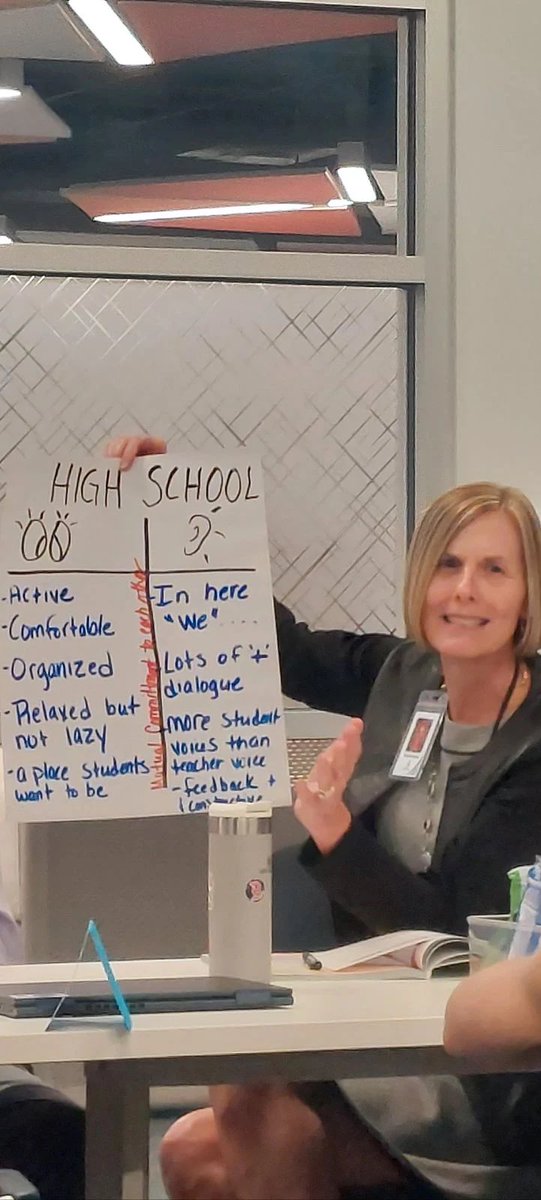 HIGH SCHOOL
- Active
- Comfortable
- Organized
- Relaxed but
not lazy
- a place students
want to be
Mutual Commitment to each other
- In here
"we"....
Lots of "+"
dialogue
more student
voices than
teacher voice
- feedback +